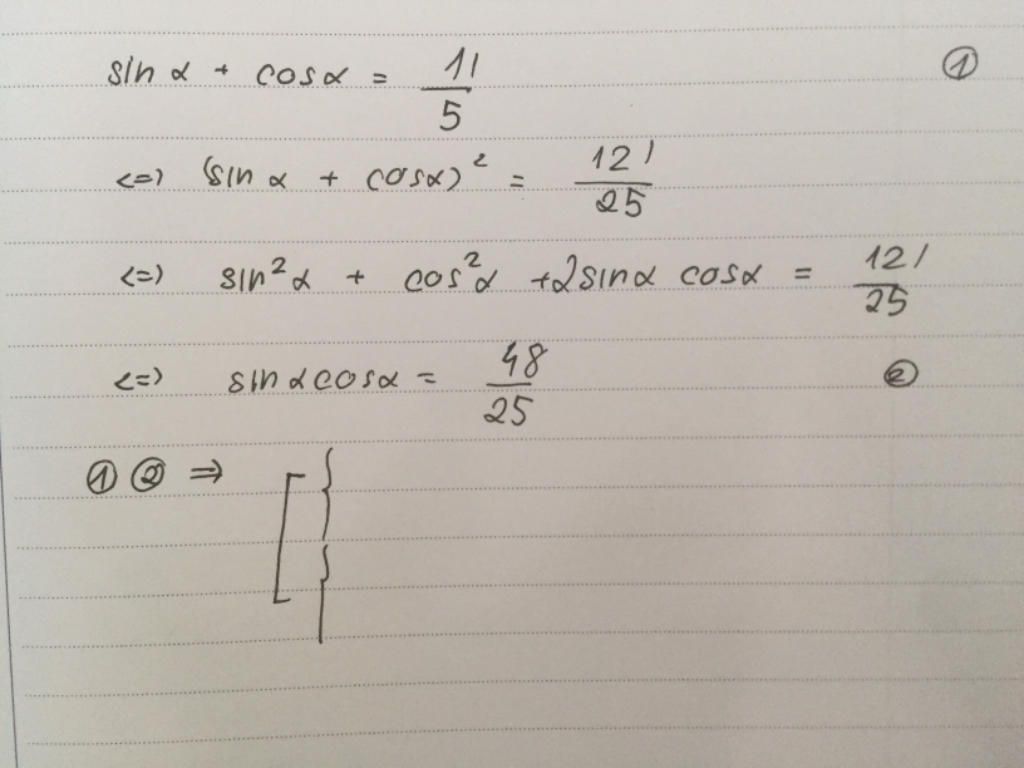 sin α + cosα = 11/5 ①
<=> (sin α + cosα)² = 121/25
<=> sin²α + cos²α +2sinα cosα = 121/25
<=> sin α cosα = 48/25 ②
① ② => [ { {